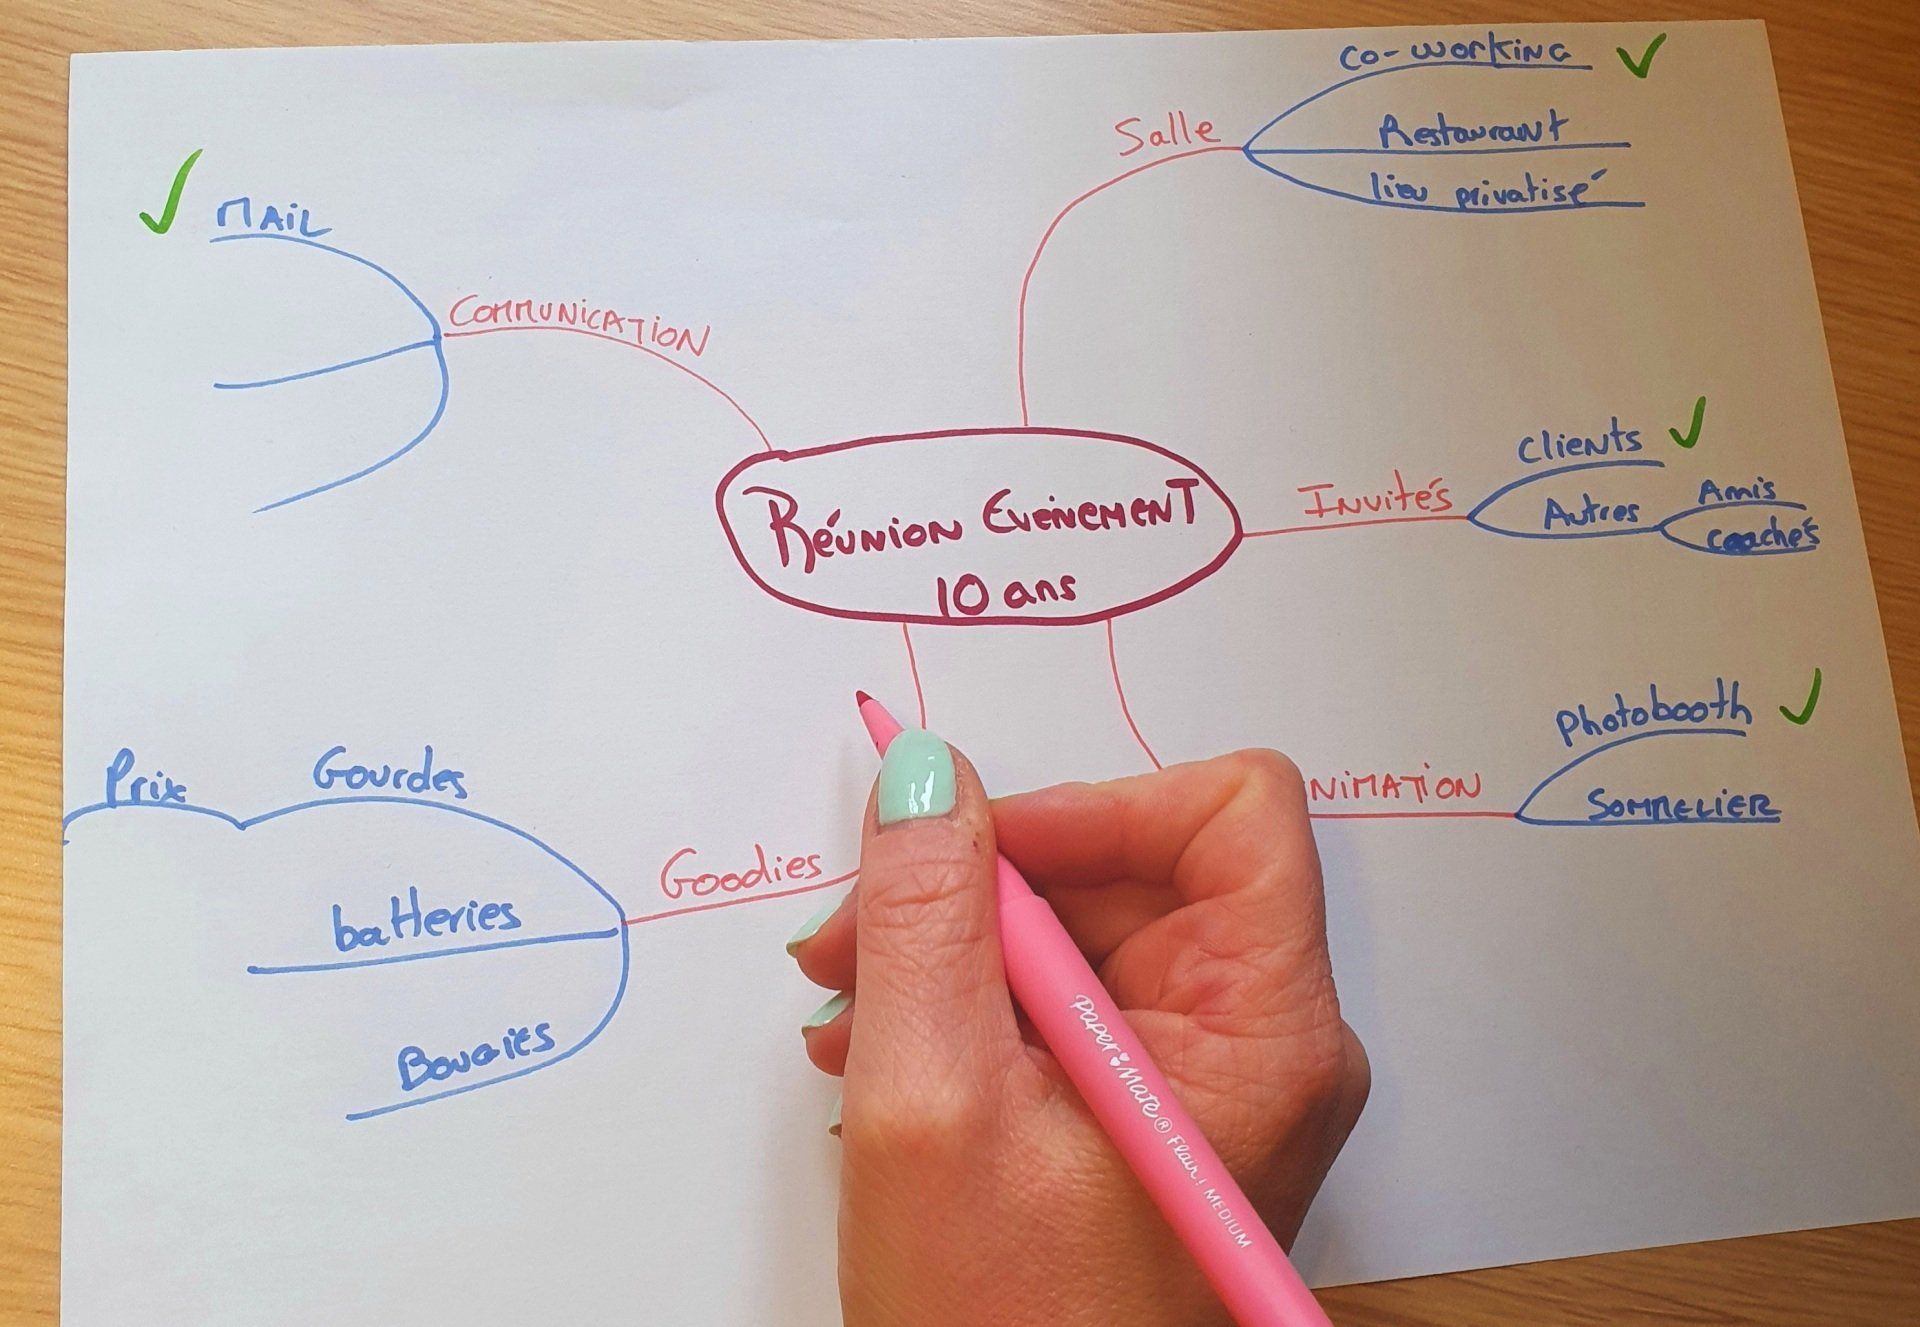 co-working
Salle
Restaurant
lieu privatisé
MAIL
COMMUNICATION
Clients
Invités
Autres
Amis
coachés
Réunion Evènement
10 ans
Photobooth
NIMATION
SOMMELIER
Prix
Gourdes
Goodies
batteries
Bougies
Paper Mate® Flair! MEDIUM